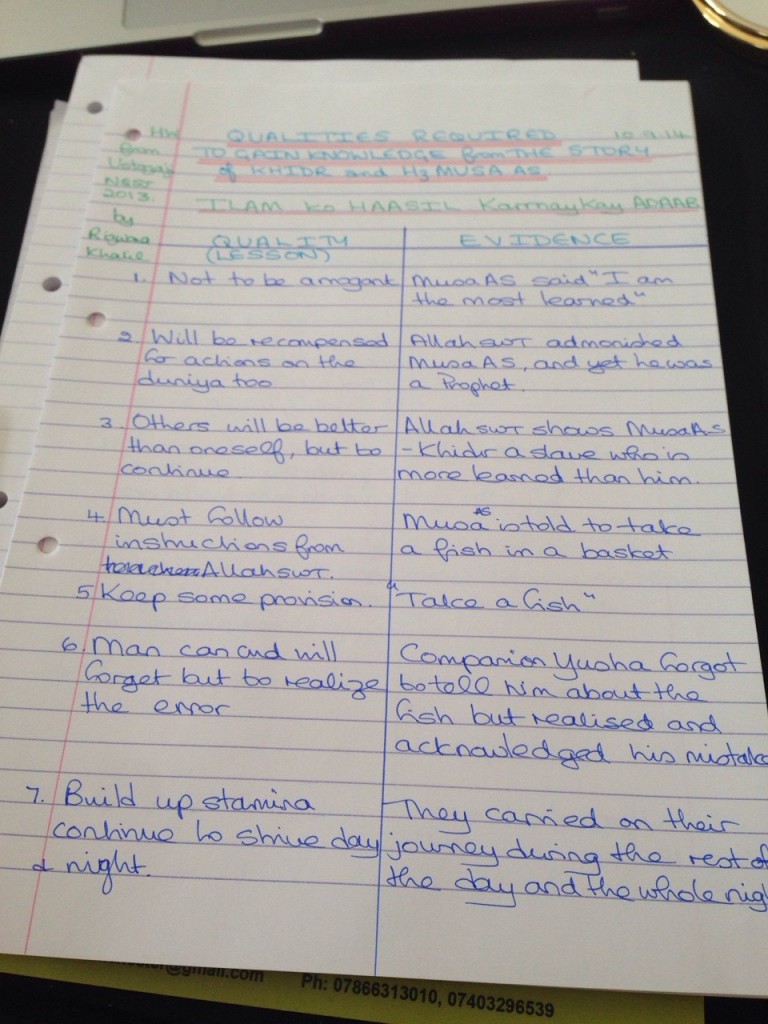 Hw QUALITIES REQUIRED 10.9.14
from TO GAIN KNOWLEDGE from THE STORY
Ustazah's of KHIDR and Hz MUSA AS
NSST
2013. ILAM ko HAASIL Karrnay Kay ADAAB
by
Rizwana QUALITY EVIDENCE
Khalil (LESSON)
1. Not to be arrogant Musa AS said "I am
the most learned"
2. Will be recompensed Allah swT admonished
for actions on the Musa AS, and yet he was
duniya too a Prophet.
3. Others will be better Allah swt shows Musa As
than oneself, but to - Khidr a slave who is
continue. more learned than him.
4. Must follow Musa AS is told to take
instructions from a fish in a basket
Allah swT.
5 Keep some provision. "Take a fish"
6. Man can and will Companion Yusha forgot
forget but to realize to tell him about the
the error fish but realised and
acknowledged his mistake
7. Build up stamina They carried on their
continue to strive day journey during the rest of
& night. the day and the whole nig
@gmail.com Ph: 07866313010, 07403296539